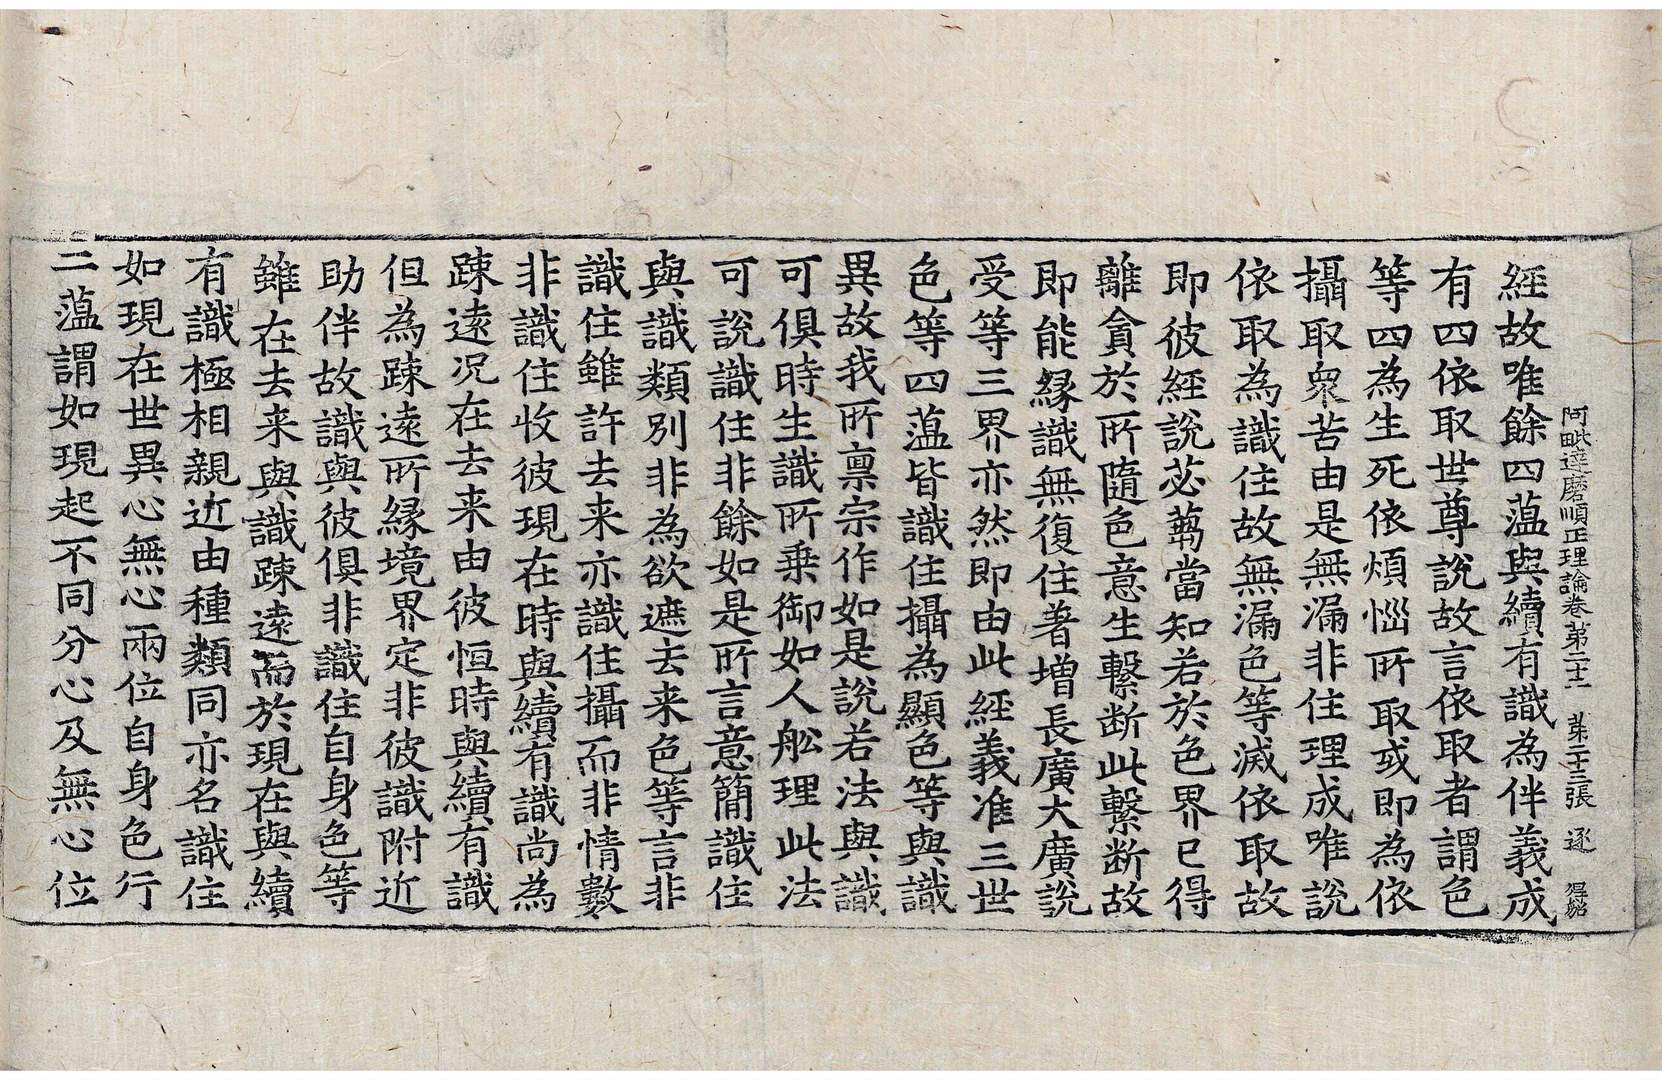 阿毗達磨順正理論卷第二十二 第二十三張 逐 
經故唯餘四薀與續有識為伴義成
有四依取世尊說故言依取者謂色
等四為生死依煩惱所取或即為依
攝取衆苦由是無漏非住理成唯說
依取為識住故無漏色等滅依取故
即彼經說苾蒭當知若於色界已得
離貪於所隨色意生繫断此繫断故
即能縁識無復住著增長廣大廣說
受等三界亦然即由此經義准三世
色等四薀皆識住攝為顯色等與識
異故我所禀宗作如是說若法與識
可俱時生識所乗御如人舩理此法
可說識住非餘如是所言意簡識住
與識類別非為欲遮去来色等言非
識住雖許去来亦識住攝而非情數
非識住收彼現在時與續有識尚為
踈遠况在去来由彼恒時與續有識
但為踈遠所縁境界定非彼識附近
助伴故識與彼俱非識住自身色等
雖在去来與識踈遠而於現在與續
有識極相親近由種類同亦名識住
如現在世異心無心兩位自身色行
二薀謂如現起不同分心及無心位